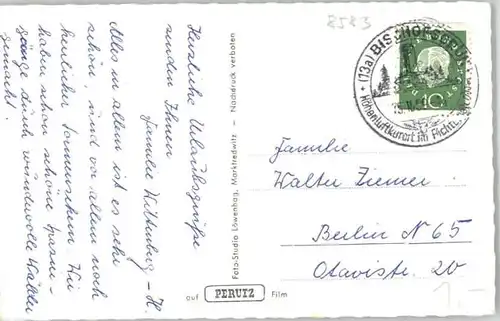 Herzliche Urlaubsgrüße
senden Ihnen
Familie Wittenburg - H.
Alles in allem ist es sehr
schön, und vor allem noch
herrlicher Sonnenschein. Wir
haben schon schöne Spazier-
gänge durch wundervolle Wälder
gemacht.
Foto-Studio Löwenhag, Marktredwitz - Nachdruck verboten
auf PERUTZ Film
2583
(13a) BISCHOFSGRÜN
Höhenluftkurort im Fichtel
10
Familie
Walter Ziemer
Berlin N 65
Otavistr. 20
1.-